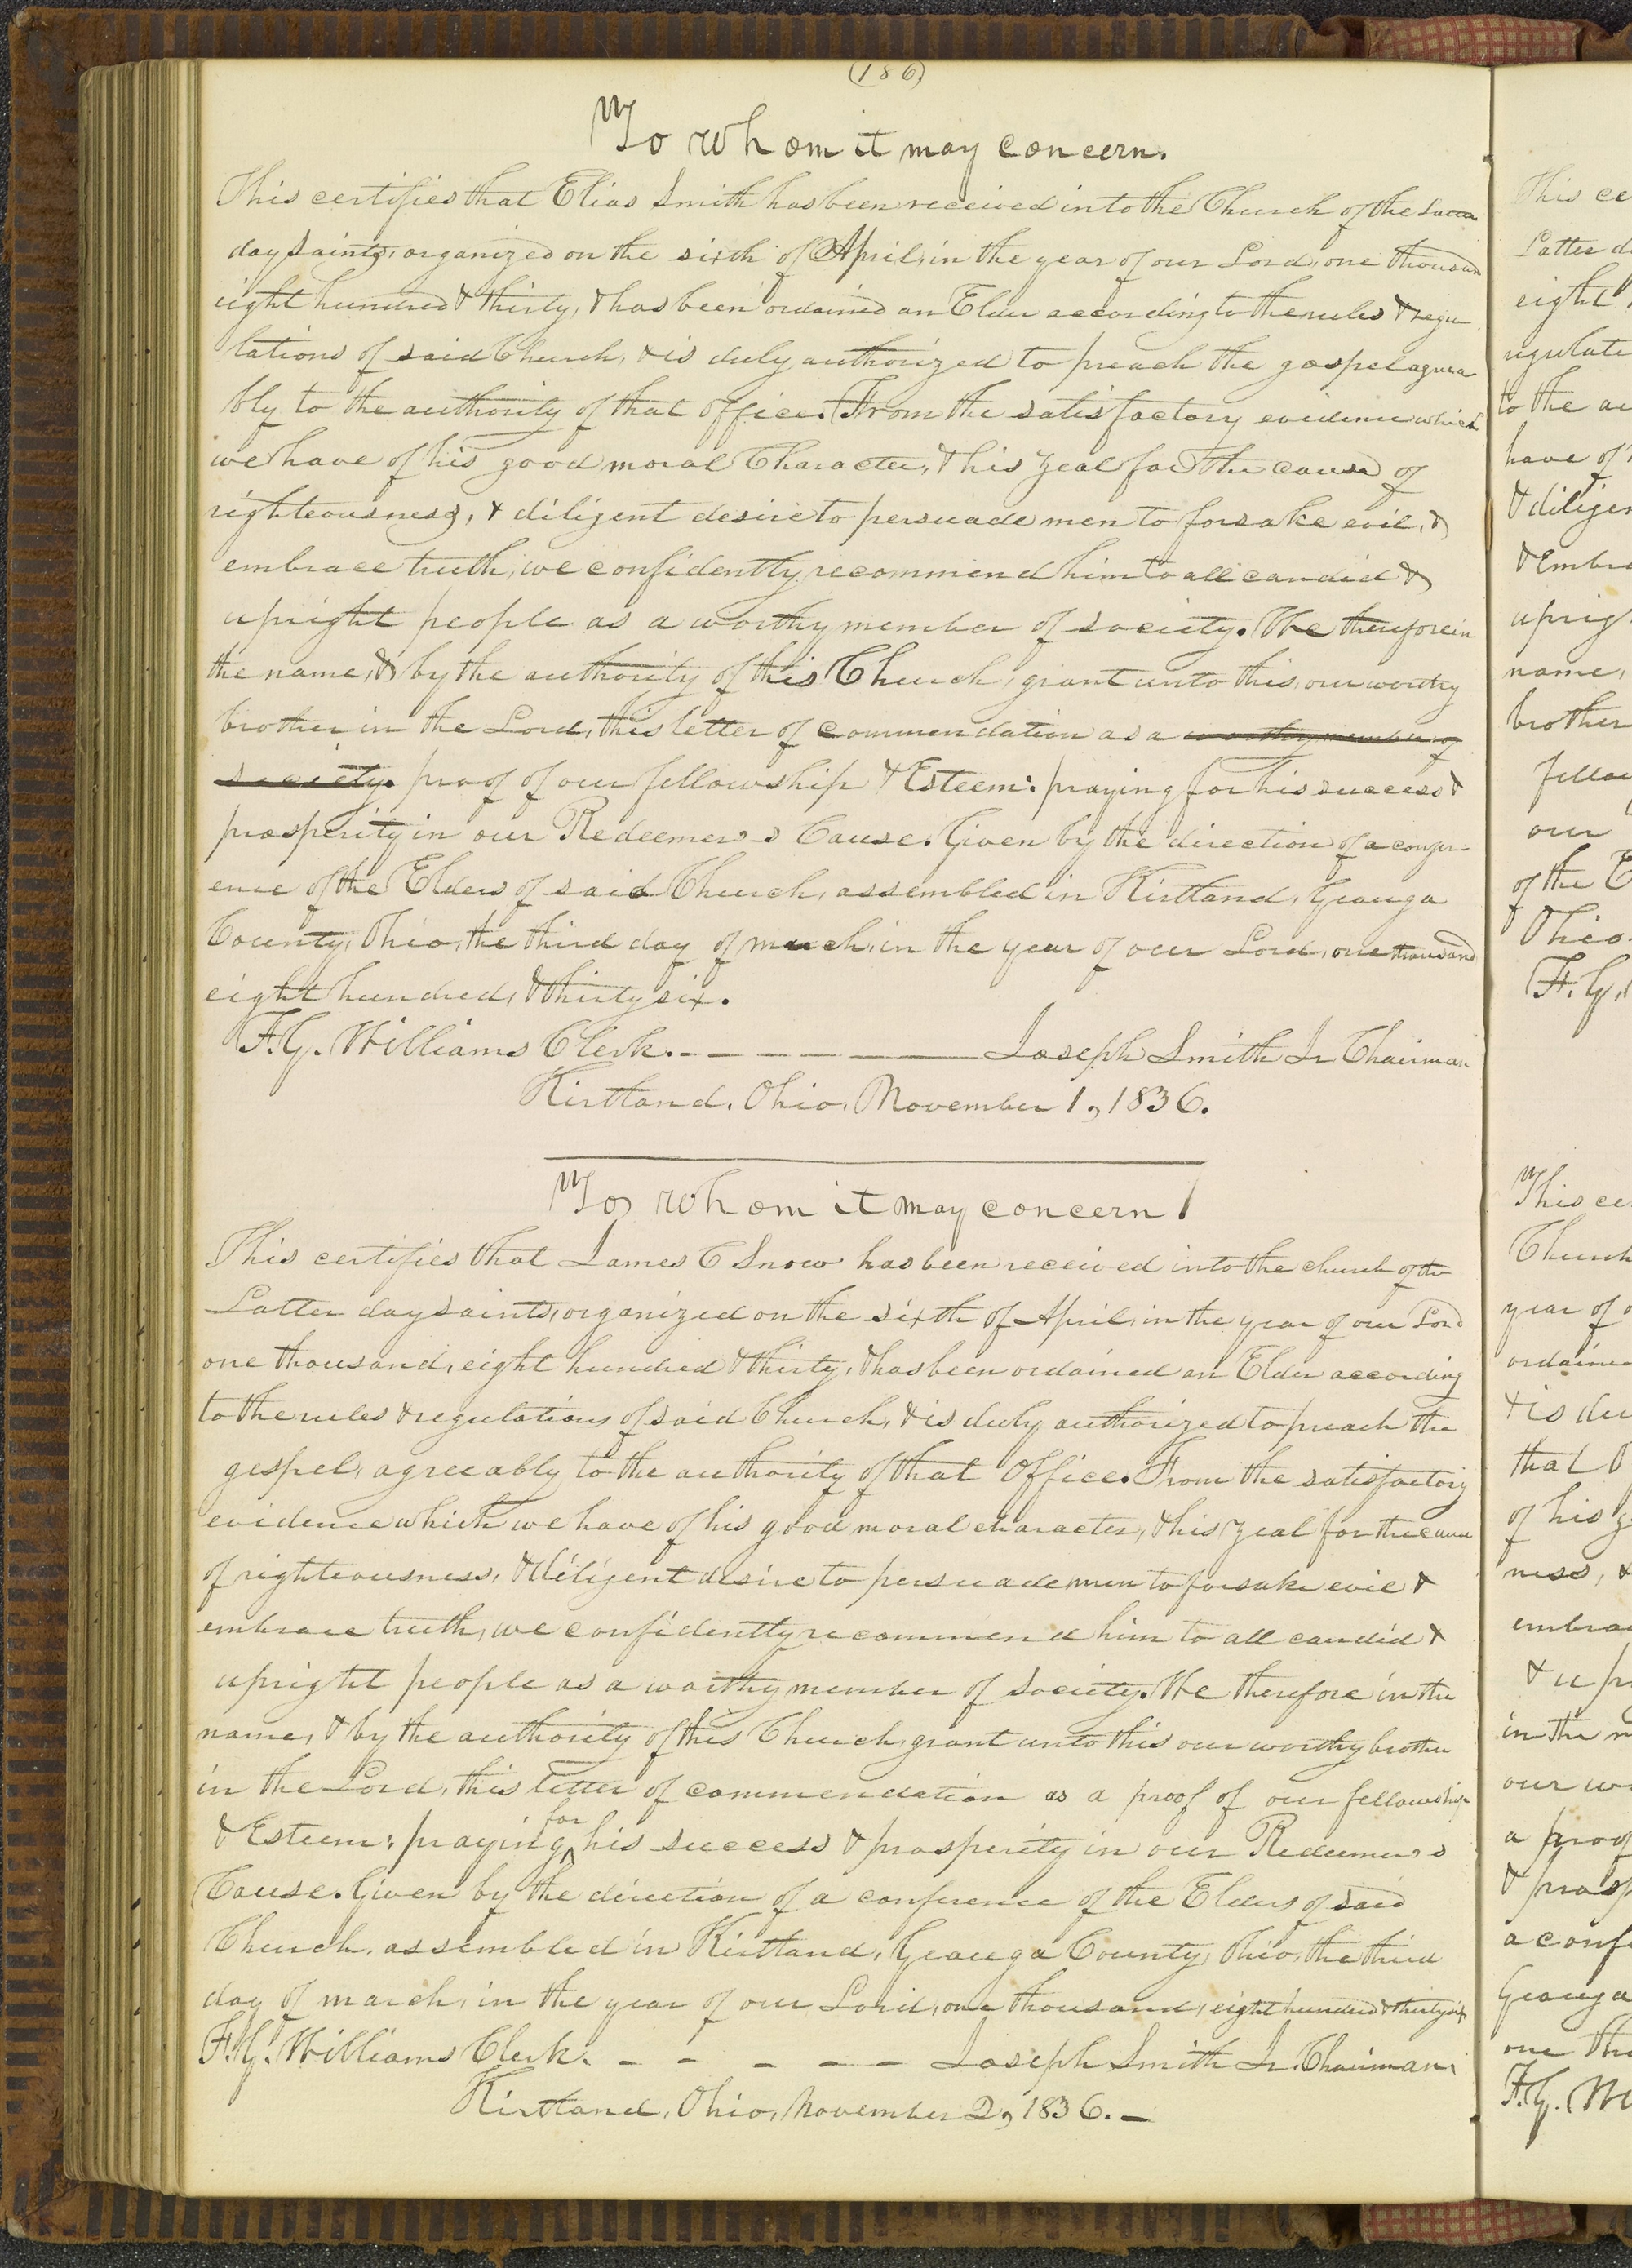 (186)
To whom it may concern.
This certifies that Elias Smith has been received into the Church of the Latter
day saints, organized on the sixth of April, in the year of our Lord, one thousand
eight hundred & thirty, & has been ordained an Elder according to the rules & regu
lations of said Church, & is duly authorized to preach the gospel agreea
bly to the authority of that office. From the satisfactory evidence which
we have of his good moral Character, & his zeal for the cause of
righteousness, & diligent desire to persuade men to forsake evil, &
embrace truth, we confidently recommend him to all candid &
upright people as a worthy member of society. We therefore in
the name, & by the authority of this Church, grant unto this, our worthy
brother in the Lord, this letter of commendation as a worthy member of
society. proof of our fellowship & Esteem: praying for his success &
prosperity in our Redeemer's Cause. Given by the direction of a confer-
ence of the Elders of said Church, assembled in Kirtland, Geauga
County, Ohio, the third day of march, in the year of our Lord, one thousand
eight hundred, & thirty six.
F. G. Williams Clerk. – – – – – Joseph Smith Jr Chairman
Kirtland, Ohio, November 1, 1836.
To whom it may concern
This certifies that James C Snow has been received into the church of the
Latter day saints, organized on the sixth of April, in the year of our Lord
one thousand, eight hundred & thirty, & has been ordained an Elder according
to the rules & regulations of said Church, & is duly authorized to preach the
gospel, agreeably to the authority of that Office. From the satisfactory
evidence which we have of his good moral character, & his zeal for the cause
of righteousness, & diligent desire to persuade men to forsake evil &
embrace truth, we confidently recommend him to all candid &
upright people as a worthy member of society. We therefore in the
name, & by the authority of this Church, grant unto this our worthy brother
in the Lord, this letter of commendation as a proof of our fellowship
& Esteem: praying for his success & prosperity in our Redeemer's
Cause. Given by the direction of a conference of the Elders of said
Church, assembled in Kirtland, Geauga County, Ohio, the third
day of march, in the year of our Lord, one thousand, eight hundred & thirty six
F. G. Williams Clerk. – – – – – Joseph Smith Jr. Chairman.
Kirtland, Ohio, November 2, 1836. –
This ce
Latter d
eight
regulate
to the au
have of
& diligen
& Embra
uprig
name,
brother
fellow
our
of the E
Ohio
F. G.
This ce
Church
year of o
ordained
& is du
that O
of his z
ness, &
embra
& up
in the n
our wo
a proof
& prosp
a conf
Geauga
one tho
F. G. Wi